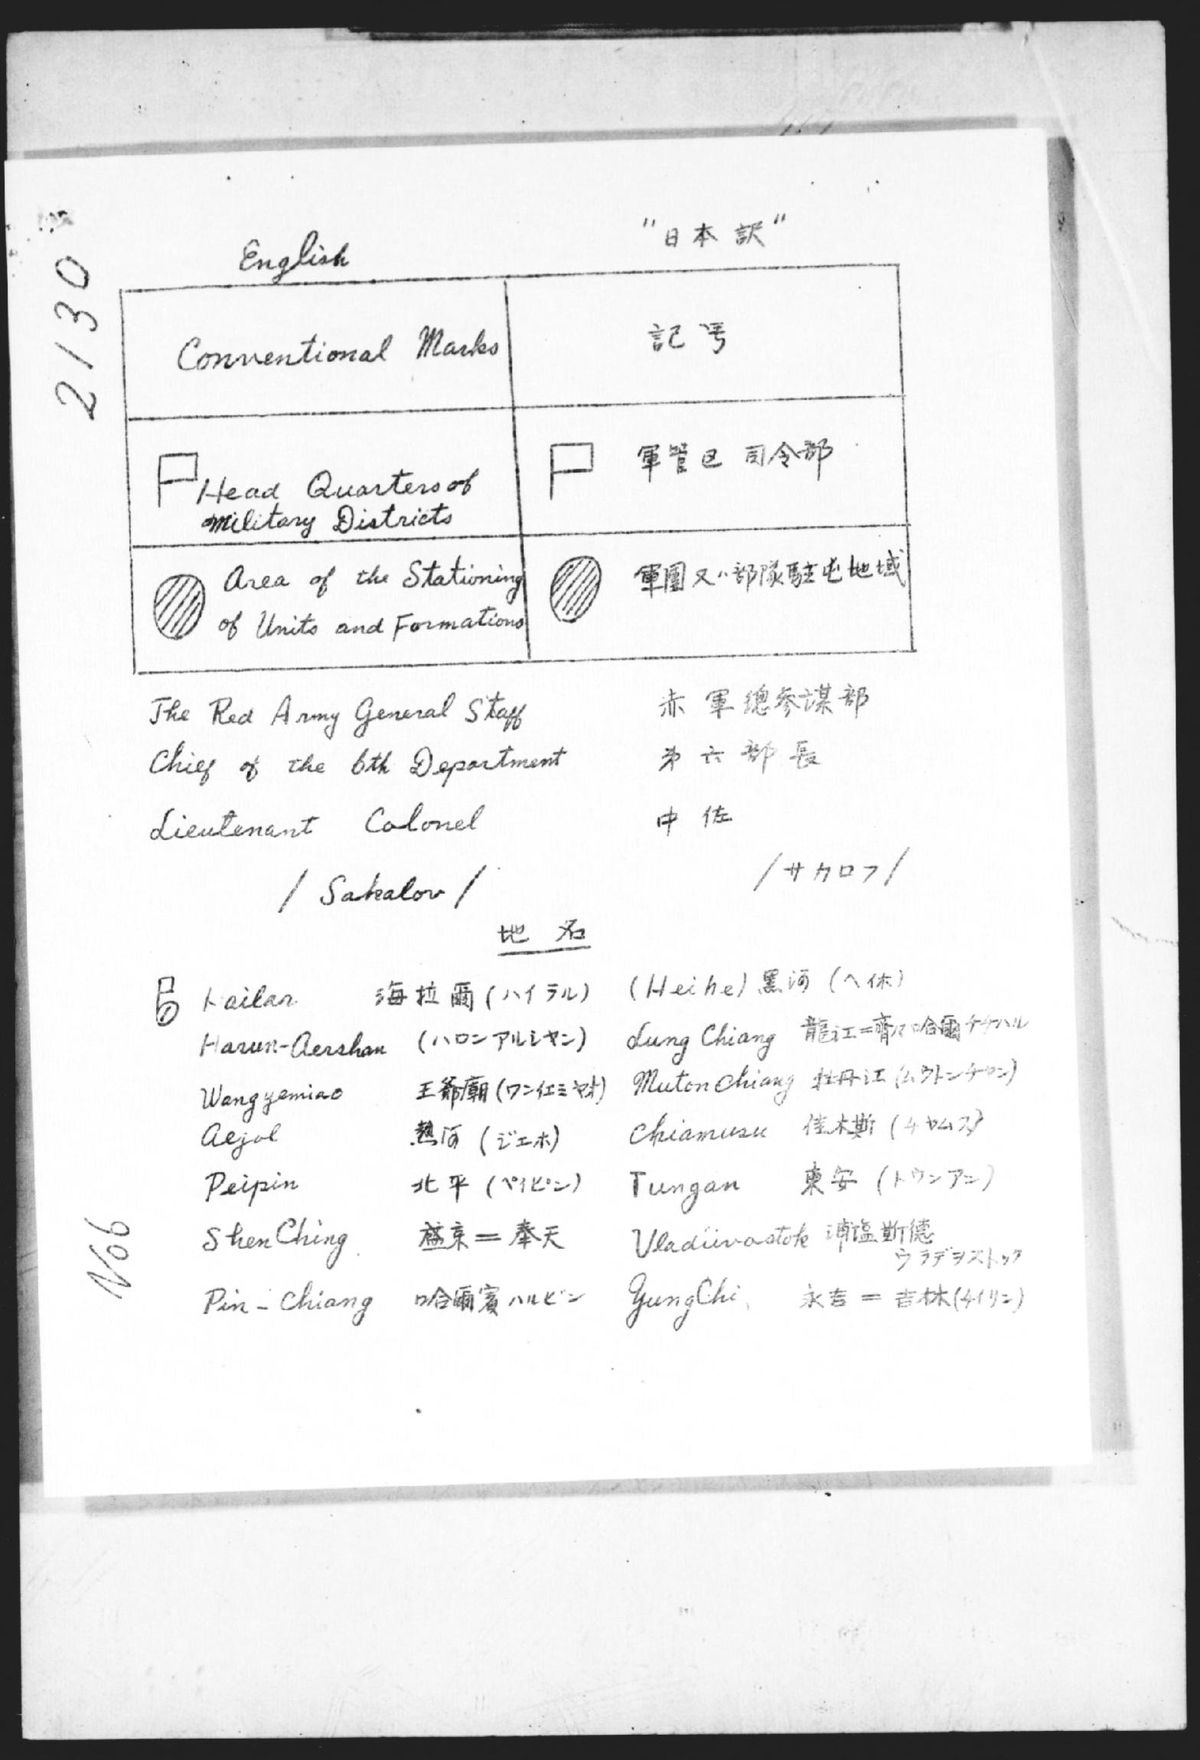 2130
English "日本訳"
Conventional Marks 記号
Head Quarters of 軍管区 司令部
Military Districts
Area of the Stationing 軍團又ハ部隊駐屯地域
of Units and Formations
The Red Army General Staff 赤軍總参謀部
Chief of the 6th Department 第六部長
Lieutenant Colonel 中佐
/ Sakalov / /サカロフ/
地名
Hailar 海拉爾(ハイラル) (Heihe) 黒河(ヘイホ)
Harun-Aershan (ハロンアルシヤン) Lung Chiang 龍江=齊々哈爾チチハル
Wangyemiao 王爺廟(ワンイエミヤオ) Mutonchiang 牡丹江(ムウトンチヤン)
Aejol 熱河(ジエホ) Chiamusu 佳木斯(チヤムス)
Peipin 北平(ペイピン) Tungan 東安(トウンアン)
ShenChing 盛京=奉天 Vladiivostok 浦塩斯徳
ウラデヲストック
Pin-Chiang 哈爾賓ハルビン YungChi 永吉=吉林(チイリン)
No6